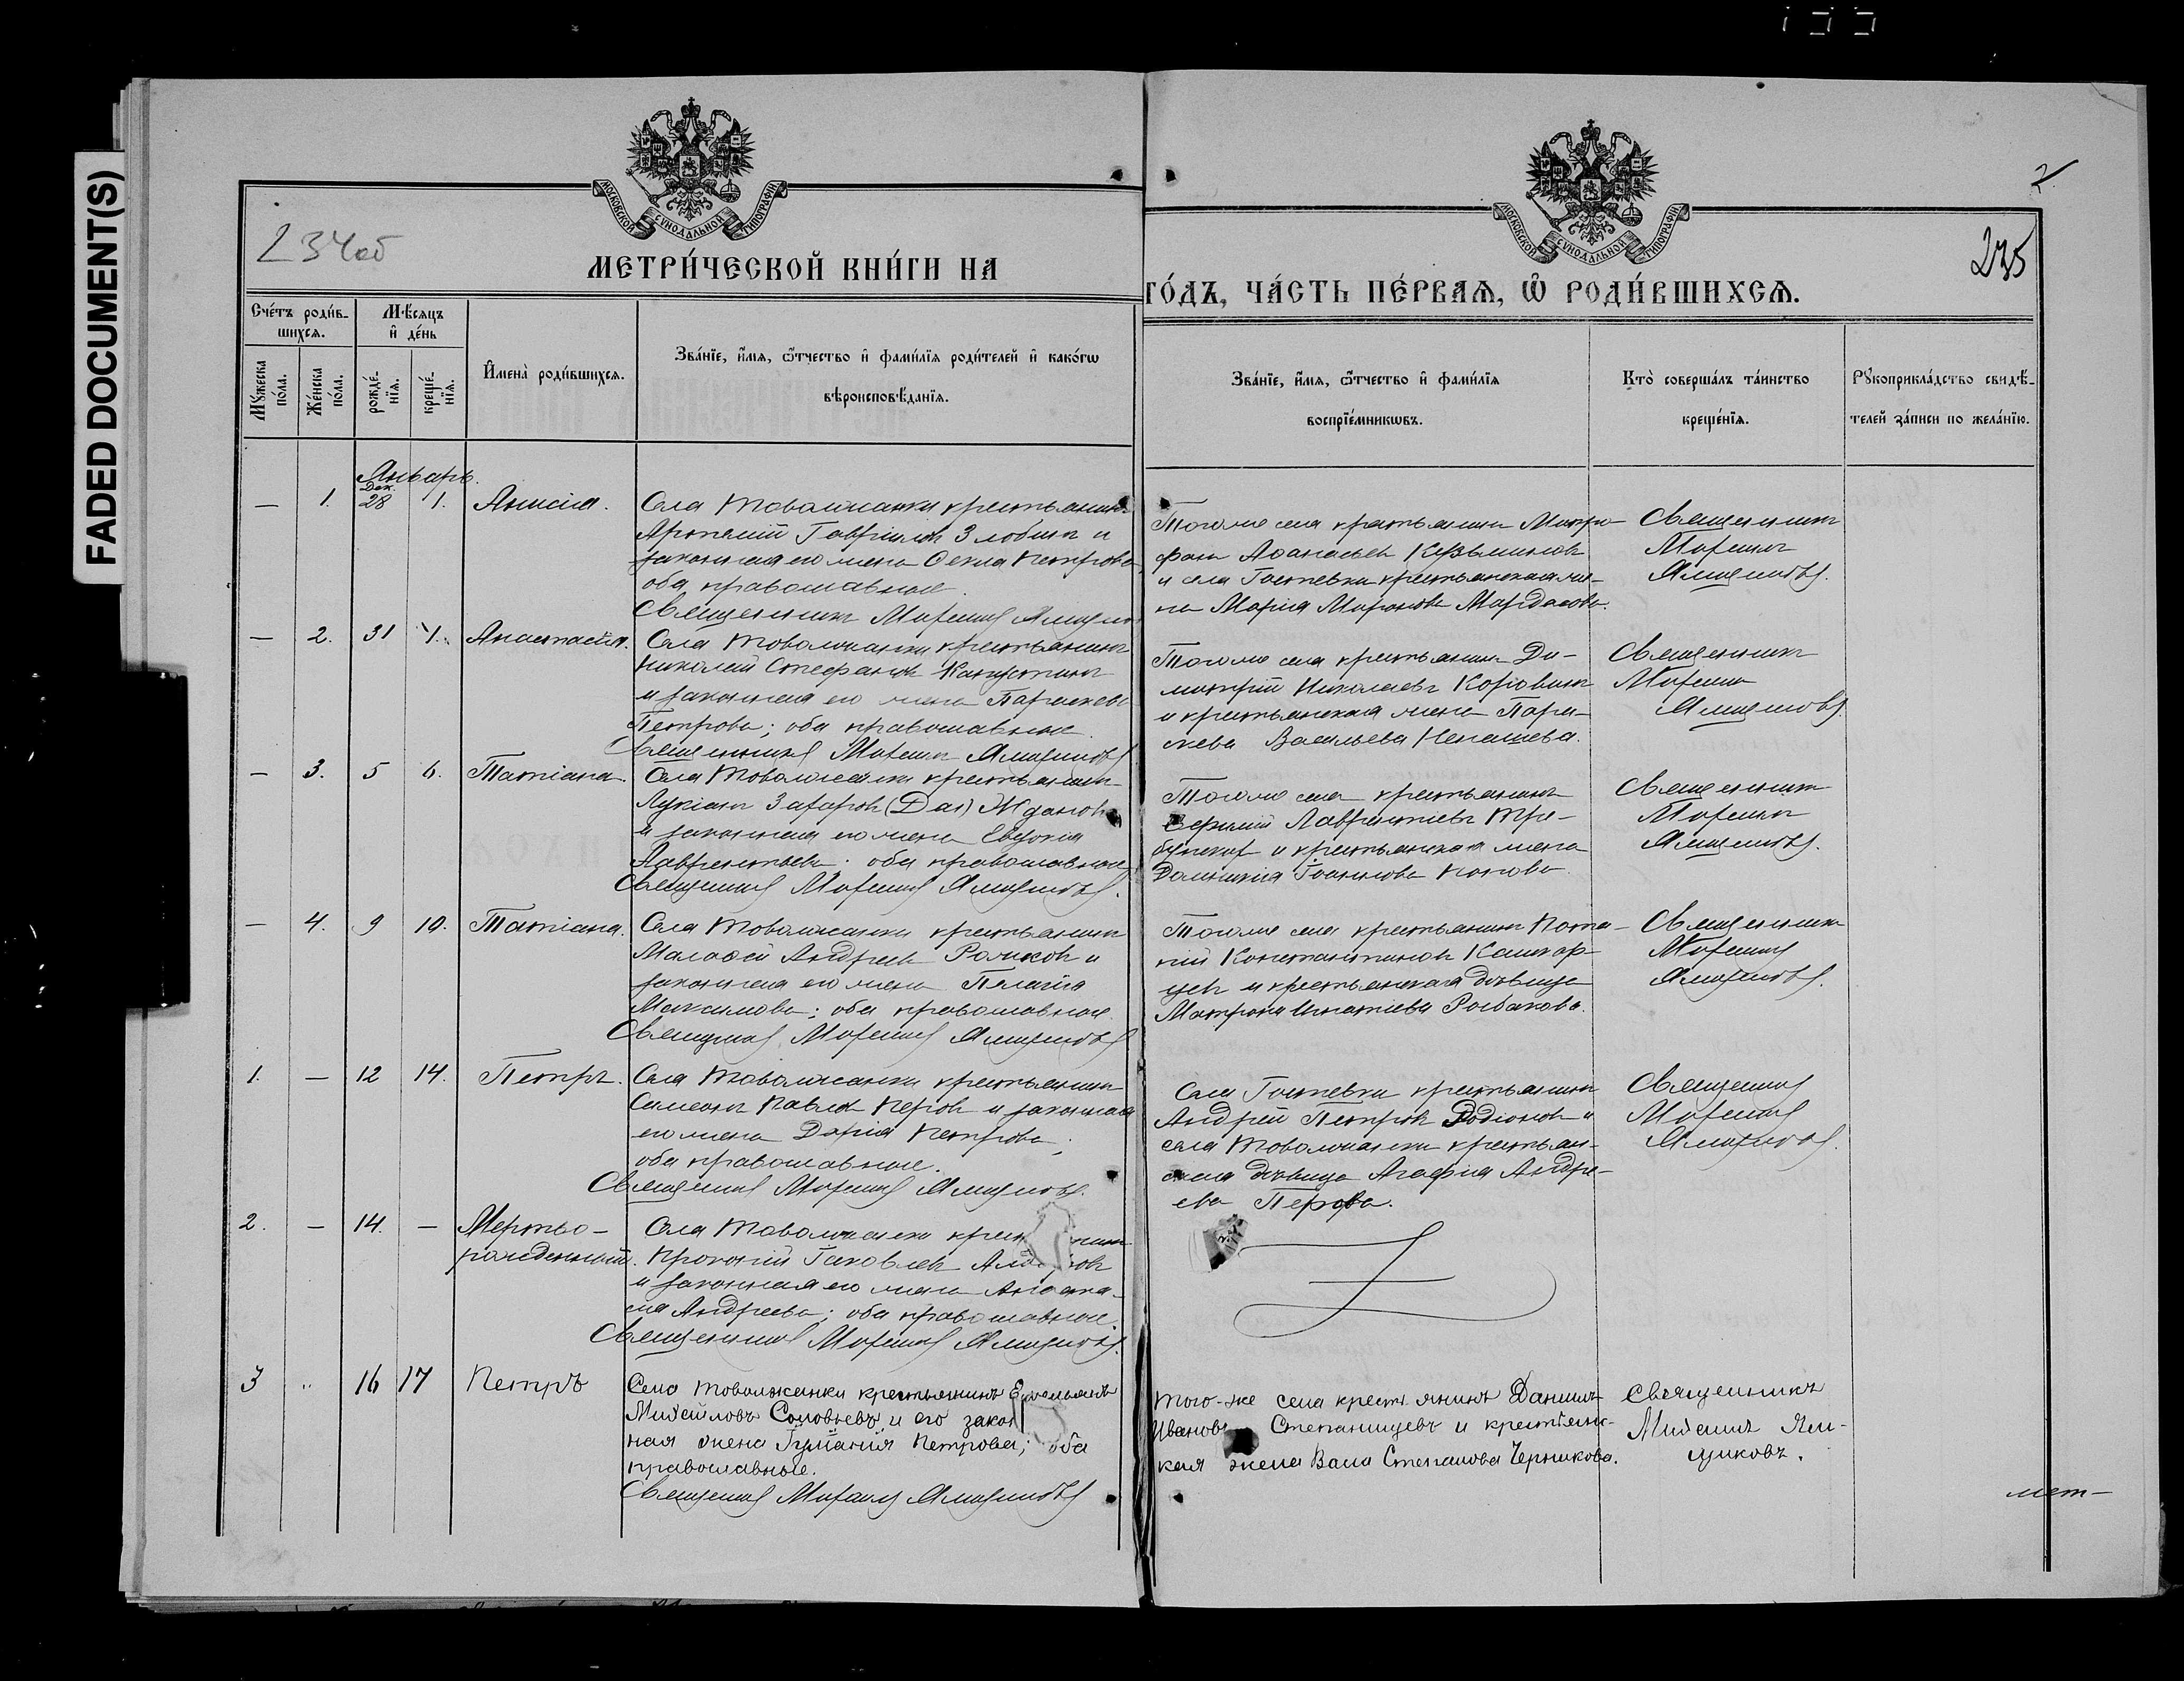 FADED DOCUMENT(S)
МОСКОВСКОЙ СѴНОДАЛЬНОЙ ТИПОГРАФІИ
234об
МЕТРИ́ЧЕСКОЙ КНИ́ГИ НА
Сче́тъ роди́в-
шихсѧ.
Мꙋ́жеска
по́ла.
Же́нска
по́ла.
Мѣ́сѧцъ
и҆ де́нь
рожде́-
нїѧ.
креще́-
нїѧ.
И҆мена̀ роди́вшихсѧ.
Зва́нїе, и҆́мѧ, ѻ҆́тчество и҆ фами́лїѧ роди́телей и҆ како́гѡ
вѣроисповѣ́данїѧ.
Январь.
— 1. Дек. 28 1. Анисія.
Села Товолжанки крестьянинъ
Артемій Гавріиловъ Злобинъ и
законная его жена Ѳекла Петрова
оба православные.
Священникъ Михаилъ
— 2. 31 1. Анастасія.
Села Товолжанки крестьянинъ
Николай Стефановъ Капустинъ
и законная его жена Параскева
Петрова; оба православные.
Священникъ Михаилъ Ямщиковъ
— 3. 5 6. Татіана.
Села Товолжанки крестьянинъ
Лукіанъ Захаровъ (Дал) Ждановъ
и законная его жена Евдокія
Лаврентьева; оба православные
Священникъ Михаилъ Ямщиковъ.
— 4. 9 10. Татіана.
Села Товолжанки крестьянинъ
Малаѳей Андреевъ Рочиковъ и
законная его жена Пелагія
Максимова; оба православные.
Священникъ Михаилъ Ямщиковъ
1. — 12 14. Петръ.
Села Товолжанки крестьянинъ
Симеонъ Павловъ Перовъ и законная
его жена Дарія Петрова;
оба православные.
Священникъ Михаилъ Ямщиковъ.
2. — 14. — Мертво-
рожденный.
Села Товолжанки
Прокопій Іаковлевъ
и законная его жена Анаста-
сія Андреева; оба православные.
Священникъ Михаилъ Ямщиковъ.
3 „ 16 17 Петръ
Села Товолжанки крестьянинъ Емельянъ
Михайловъ Соловьевъ и его закон
ная жена Іуліанія Петрова; оба
православные.
Священникъ Михаилъ Ямщиковъ
МОСКОВСКОЙ СѴНОДАЛЬНОЙ ТИПОГРАФІИ
235
ГО́ДЪ, ЧА́СТЬ ПЕ́РВАѦ, Ѡ҆ РОДИ́ВШИХСѦ.
Зва́нїе, и҆́мѧ, ѻ҆́тчество и҆ фами́лїѧ
воспрїе́мникѡвъ.
Кто̀ соверша́лъ та́инство
креще́нїѧ.
Рꙋкоприкла́дство свидѣ́-
телей за́писи по жела́нїю.
Тогоже села крестьянинъ Митро-
фанъ Аѳанасьевъ Кузьминовъ
и села Гостевки крестьянская же-
на Марія Миронова Мардасова.
Священникъ
Михаилъ
Ямщиковъ.
Тогоже села крестьянинъ Ди-
митрій Николаевъ Коровинъ
и крестьянская жена Пара-
скева Васильева Ненашева.
Священникъ
Михаилъ
Ямщиковъ.
Тогоже села крестьянинъ
Ефимій Лаврентіевъ Тре-
бунскихъ и крестьянская жена
Домникія Іоаннова Попова.
Священникъ
Михаилъ
Ямщиковъ.
Тогоже села крестьянинъ Пота-
пій Константиновъ Кашкор-
цевъ и крестьянская дѣвица
Матрона Игнатіева Рыбакова.
Священникъ
Михаилъ
Ямщиковъ.
Села Гостевки крестьянинъ
Андрей Петровъ Родіоновъ и
села Товолжанки крестьян-
ская дѣвица Агафія Андре-
ева Перова.
Священникъ
Михаилъ
Ямщиковъ.
Того-же села крестьянинъ Даніилъ
Ивановъ Степанищевъ и крестьянс-
кая жена Васа Степанова Черникова.
Священникъ
Михаилъ Ям-
щиковъ.